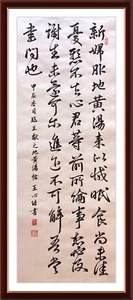 新婦服地黄湯來似減眠食尚未佳
憂懸不去心君等前所論事想必及
謝生未還可爾進退不可解吾當
書問也
甲辰 月臨王獻之地黄湯帖 王心 書